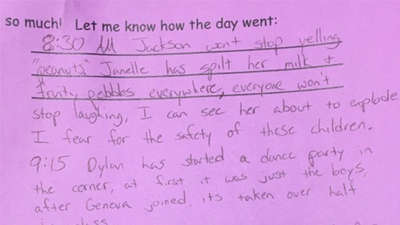 so much! Let me know how the day went:
8:30 AM Jackson won't stop yelling
"peanuts" Janelle has spilt her milk +
fruity pebbles everywhere, everyone won't
stop laughing, I can see her about to explode
I fear for the safety of these children.
9:15 Dylan has started a dance party in
the corner, at first it was just the boys,
after Geneva joined, its taken over half